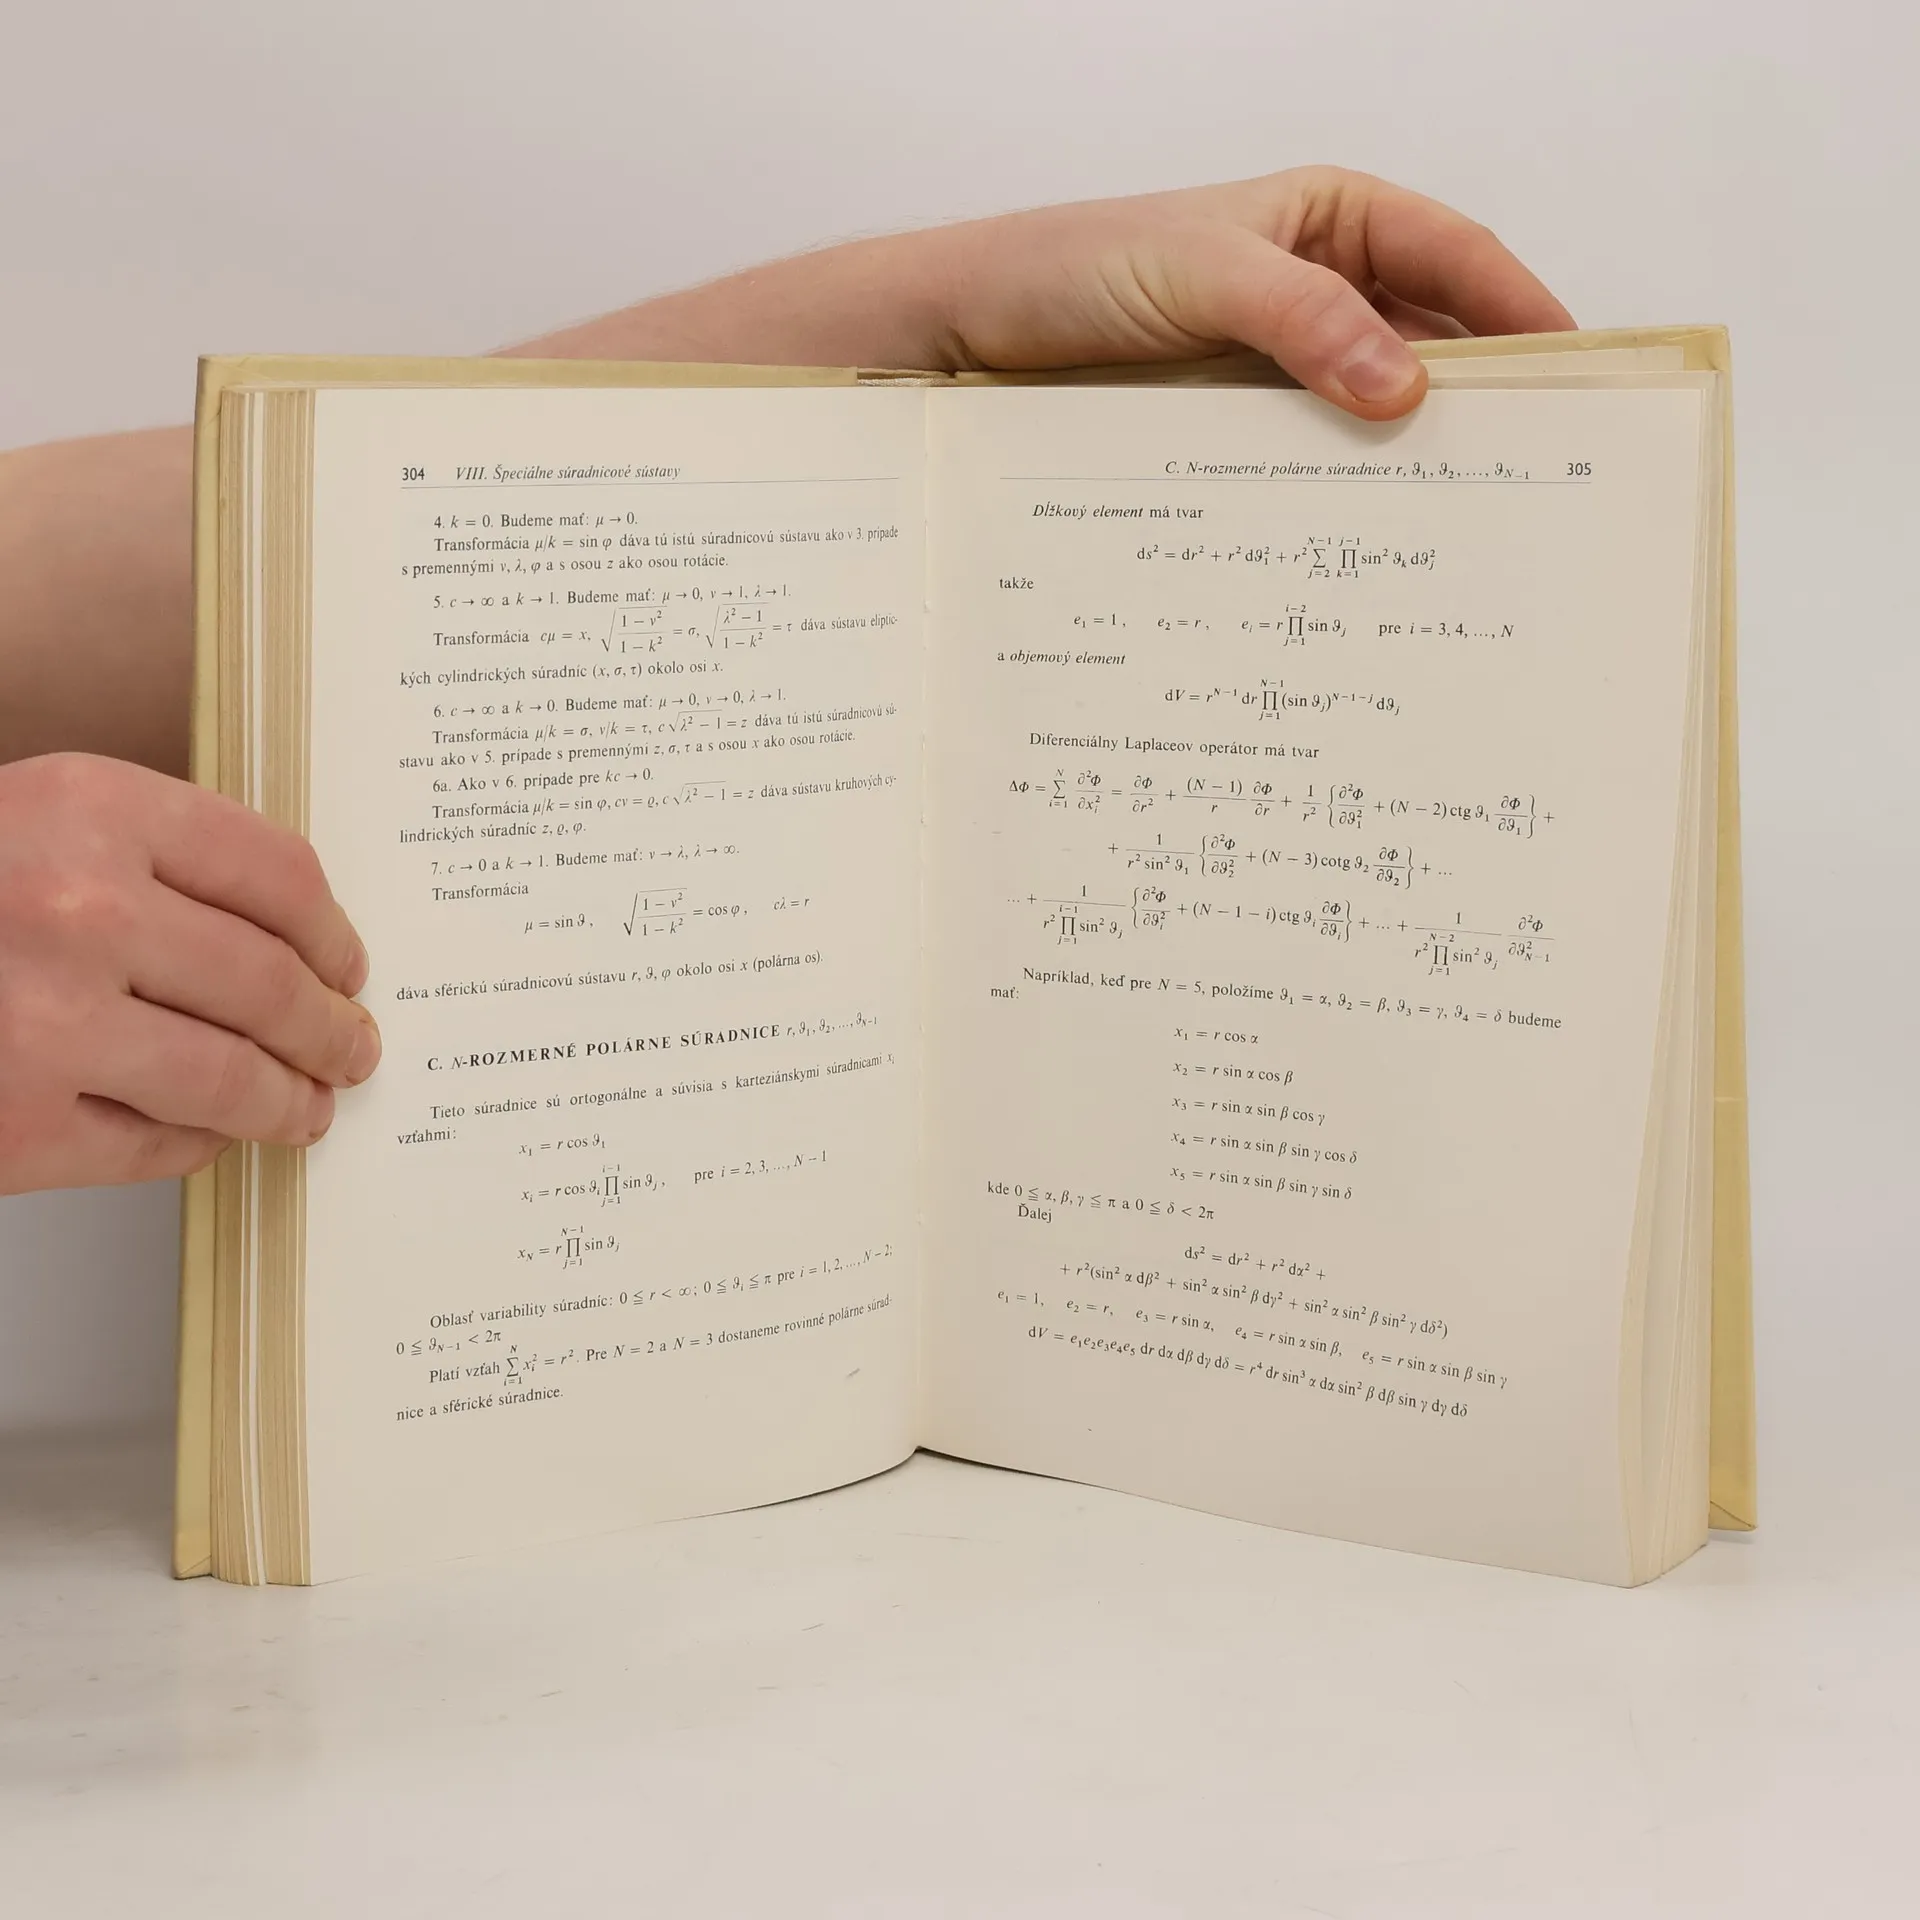 304 VIII. Špeciálne súradnicové sústavy
4. k = 0. Budeme mať: μ → 0.
Transformácia μ/k = sin φ dáva tú istú súradnicovú sústavu ako v 3. prípade
s premennými ν, λ, φ a s osou z ako osou rotácie.
5. c → ∞ a k → 1. Budeme mať: μ → 0, ν → 1, λ → 1.
Transformácia cμ = x, √((1 − ν²)/(1 − k²)) = σ, √((λ² − 1)/(1 − k²)) = τ dáva sústavu eliptic-
kých cylindrických súradníc (x, σ, τ) okolo osi x.
6. c → ∞ a k → 0. Budeme mať: μ → 0, ν → 0, λ → 1.
Transformácia μ/k = σ, ν/k = τ, c√(λ² − 1) = z dáva tú istú súradnicovú sú-
stavu ako v 5. prípade s premennými z, σ, τ a s osou x ako osou rotácie.
6a. Ako v 6. prípade pre kc → 0.
Transformácia μ/k = sin φ, cν = ϱ, c√(λ² − 1) = z dáva sústavu kruhových cy-
lindrických súradníc z, ϱ, φ.
7. c → 0 a k → 1. Budeme mať: ν → λ, λ → ∞.
Transformácia
μ = sin ϑ, √((1 − ν²)/(1 − k²)) = cos φ, cλ = r
dáva sférickú súradnicovú sústavu r, ϑ, φ okolo osi x (polárna os).
C. N-ROZMERNÉ POLÁRNE SÚRADNICE r, ϑ₁, ϑ₂, ..., ϑ_{N−1}
Tieto súradnice sú ortogonálne a súvisia s karteziánskymi súradnicami x_i
vzťahmi:
x₁ = r cos ϑ₁
x_i = r cos ϑ_i ∏_{j=1}^{i−1} sin ϑ_j, pre i = 2, 3, ..., N − 1
x_N = r ∏_{j=1}^{N−1} sin ϑ_j
Oblasť variability súradníc: 0 ≦ r < ∞; 0 ≦ ϑ_i ≦ π pre i = 1, 2, ..., N − 2;
0 ≦ ϑ_{N−1} < 2π
Platí vzťah ∑_{i=1}^{N} x_i² = r². Pre N = 2 a N = 3 dostaneme rovinné polárne súrad-
nice a sférické súradnice.
C. N-rozmerné polárne súradnice r, ϑ₁, ϑ₂, ..., ϑ_{N−1} 305
Dĺžkový element má tvar
ds² = dr² + r² dϑ₁² + r² ∑_{j=2}^{N−1} ∏_{k=1}^{j−1} sin² ϑ_k dϑ_j²
takže
e₁ = 1, e₂ = r, e_i = r ∏_{j=1}^{i−2} sin ϑ_j pre i = 3, 4, ..., N
a objemový element
dV = r^{N−1} dr ∏_{j=1}^{N−1} (sin ϑ_j)^{N−1−j} dϑ_j
Diferenciálny Laplaceov operátor má tvar
ΔΦ = ∑_{i=1}^{N} ∂²Φ/∂x_i² = ∂Φ/∂r² + (N − 1)/r ∂Φ/∂r + 1/r² {∂²Φ/∂ϑ₁² + (N − 2) ctg ϑ₁ ∂Φ/∂ϑ₁} +
+ 1/(r² sin² ϑ₁) {∂²Φ/∂ϑ₂² + (N − 3) cotg ϑ₂ ∂Φ/∂ϑ₂} + ...
... + 1/(r² ∏_{j=1}^{i−1} sin² ϑ_j) {∂²Φ/∂ϑ_i² + (N − 1 − i) ctg ϑ_i ∂Φ/∂ϑ_i} + ... + 1/(r² ∏_{j=1}^{N−2} sin² ϑ_j) ∂²Φ/∂ϑ²_{N−1}
Napríklad, keď pre N = 5, položíme ϑ₁ = α, ϑ₂ = β, ϑ₃ = γ, ϑ₄ = δ budeme
mať:
x₁ = r cos α
x₂ = r sin α cos β
x₃ = r sin α sin β cos γ
x₄ = r sin α sin β sin γ cos δ
x₅ = r sin α sin β sin γ sin δ
kde 0 ≦ α, β, γ ≦ π a 0 ≦ δ < 2π
Ďalej
ds² = dr² + r² dα² +
+ r²(sin² α dβ² + sin² α sin² β dγ² + sin² α sin² β sin² γ dδ²)
e₁ = 1, e₂ = r, e₃ = r sin α, e₄ = r sin α sin β, e₅ = r sin α sin β sin γ
dV = e₁e₂e₃e₄e₅ dr dα dβ dγ dδ = r⁴ dr sin³ α dα sin² β dβ sin γ dγ dδ